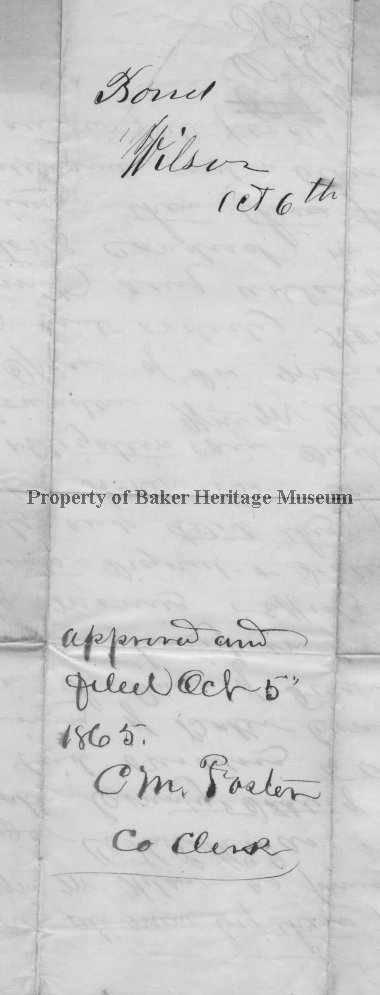 Bond
Wilson
Oct 6th
Property of Baker Heritage Museum
approved and
filed Oct 5"
1865.
C M. Foster
Co Clerk